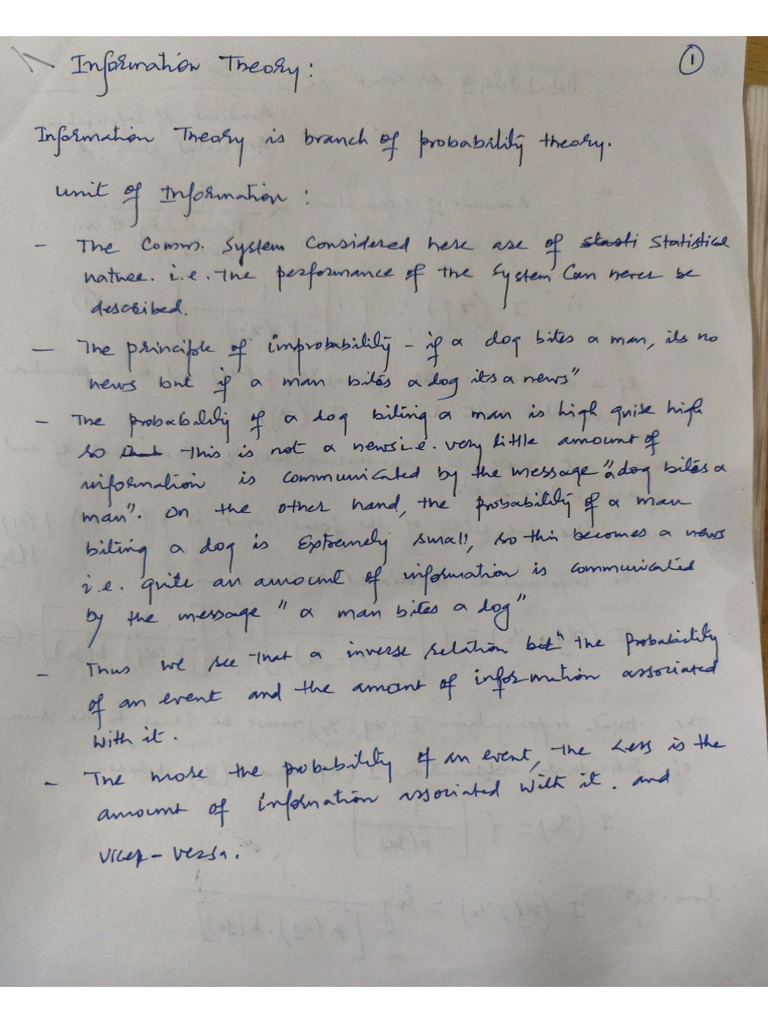 Information Theory :
1
Information Theory is branch of probability theory.
unit of Information :
- The Comms. System Considered here are of stasti Statistical
nature. i.e. The performance of the System Can never be
described.
- The principle of improbability - if a dog bites a man, its no
news but if a man bites a dog its a news"
- The probability of a dog biting a man is high quite high
so This is not a news i.e. very little amount of
information is communicated by the message "a dog bites a
man". On the other hand, the probability of a man
biting a dog is Extremely small, so this becomes a news
i.e. quite an amount of information is communicated
by the message " a man bites a dog"
- Thus we see that a inverse relation betn the Probability
of an event and the amount of information associated
with it.
- The more the probability of an event, the Less is the
amount of information associated with it. and
vice-versa.